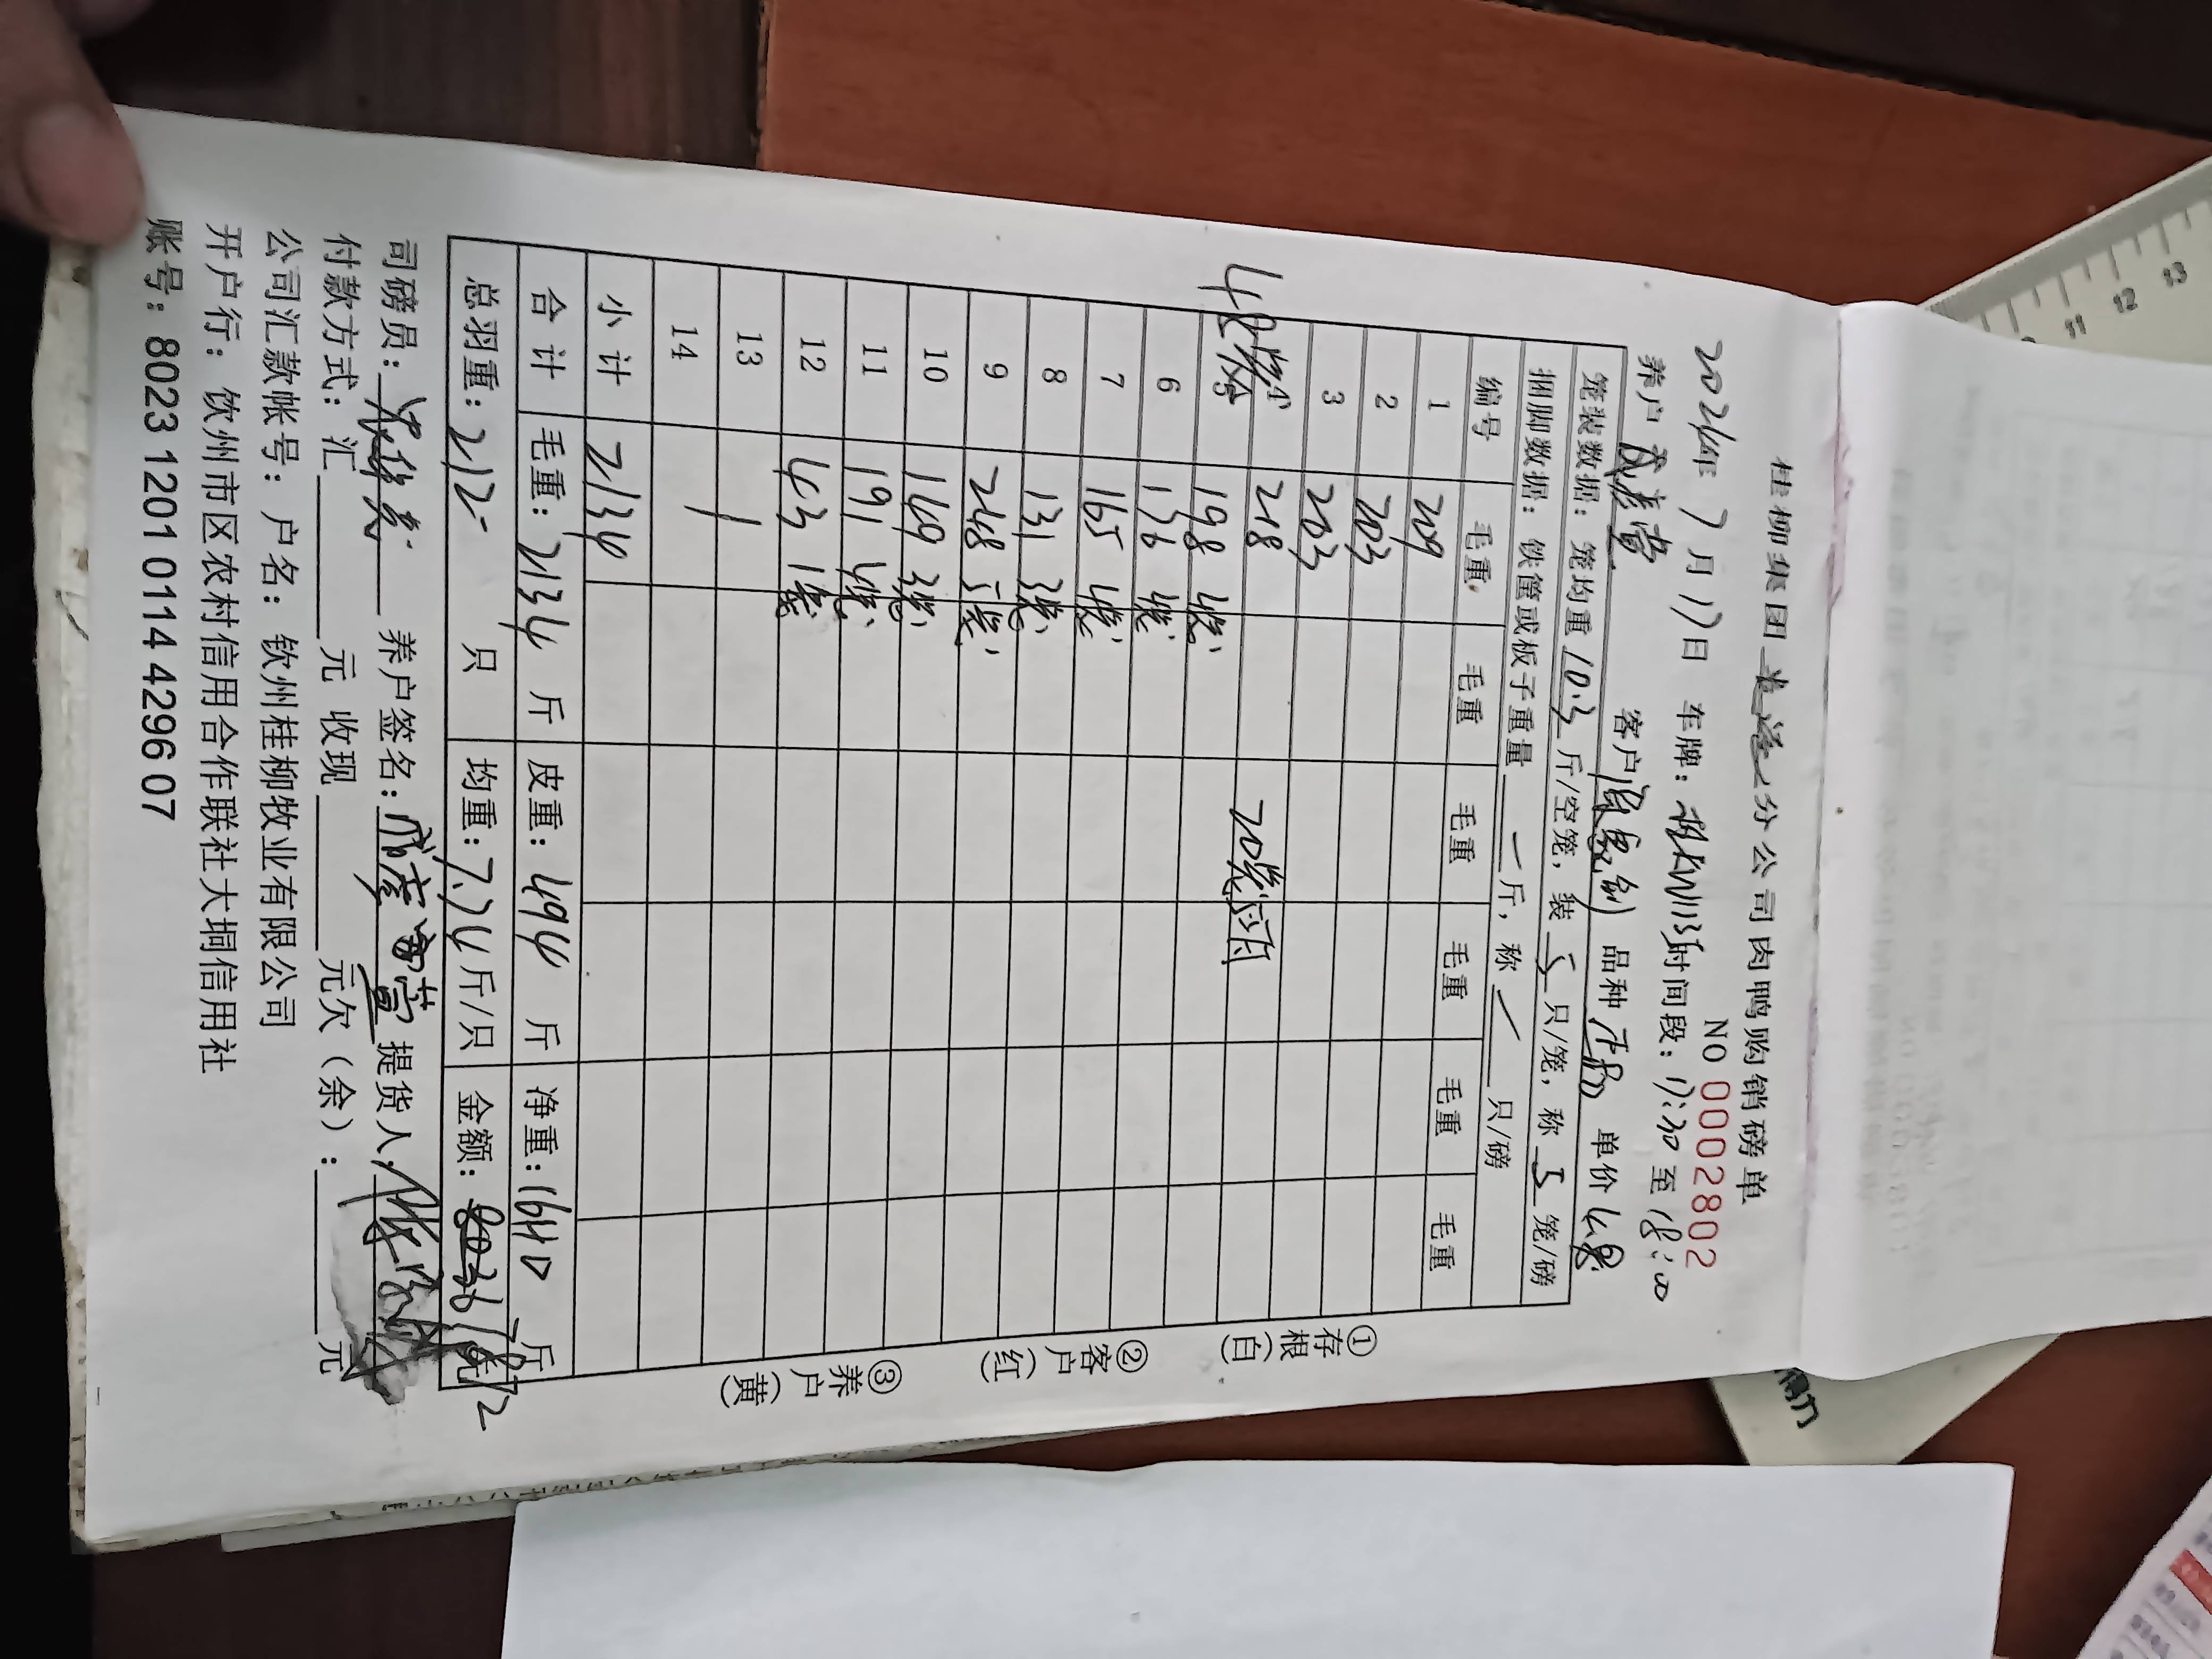 桂柳集团 分公司肉鸭购销磅单
NO 00028802
2024年7月17日 车牌: 时间段：17:30 至 18:00
养户 客户 品种 单价 4.8
笼装数据：笼均重 10.3 斤/空笼，装 5 只/笼，称 5 笼/磅
捆脚数据：铁筐或板子重量 — 斤，称 / 只/磅
编号 毛重 毛重 毛重 毛重 毛重 毛重
1 209
2 203
3 203
218 20笼
198 4笼
6 136 4笼
7 165 4笼
8 131 3笼
9 248 5笼
10 169 3笼
11 191 4笼
12 43 1笼
13
14
小计 2134
合计 毛重：2134 斤 皮重：494 斤 净重：1640 斤
总羽重：212 只 均重：7.74 斤/只 金额： 元
司磅员： 养户签名： 提货人：
付款方式：汇 元 收现 元欠（余）： 元
公司汇款帐号：户名：钦州桂柳牧业有限公司
开户行：钦州市区农村信用合作联社大垌信用社
账号：8023 1201 0114 4296 07
①存根（白）
②客户（红）
③养户（黄）
11
12
13